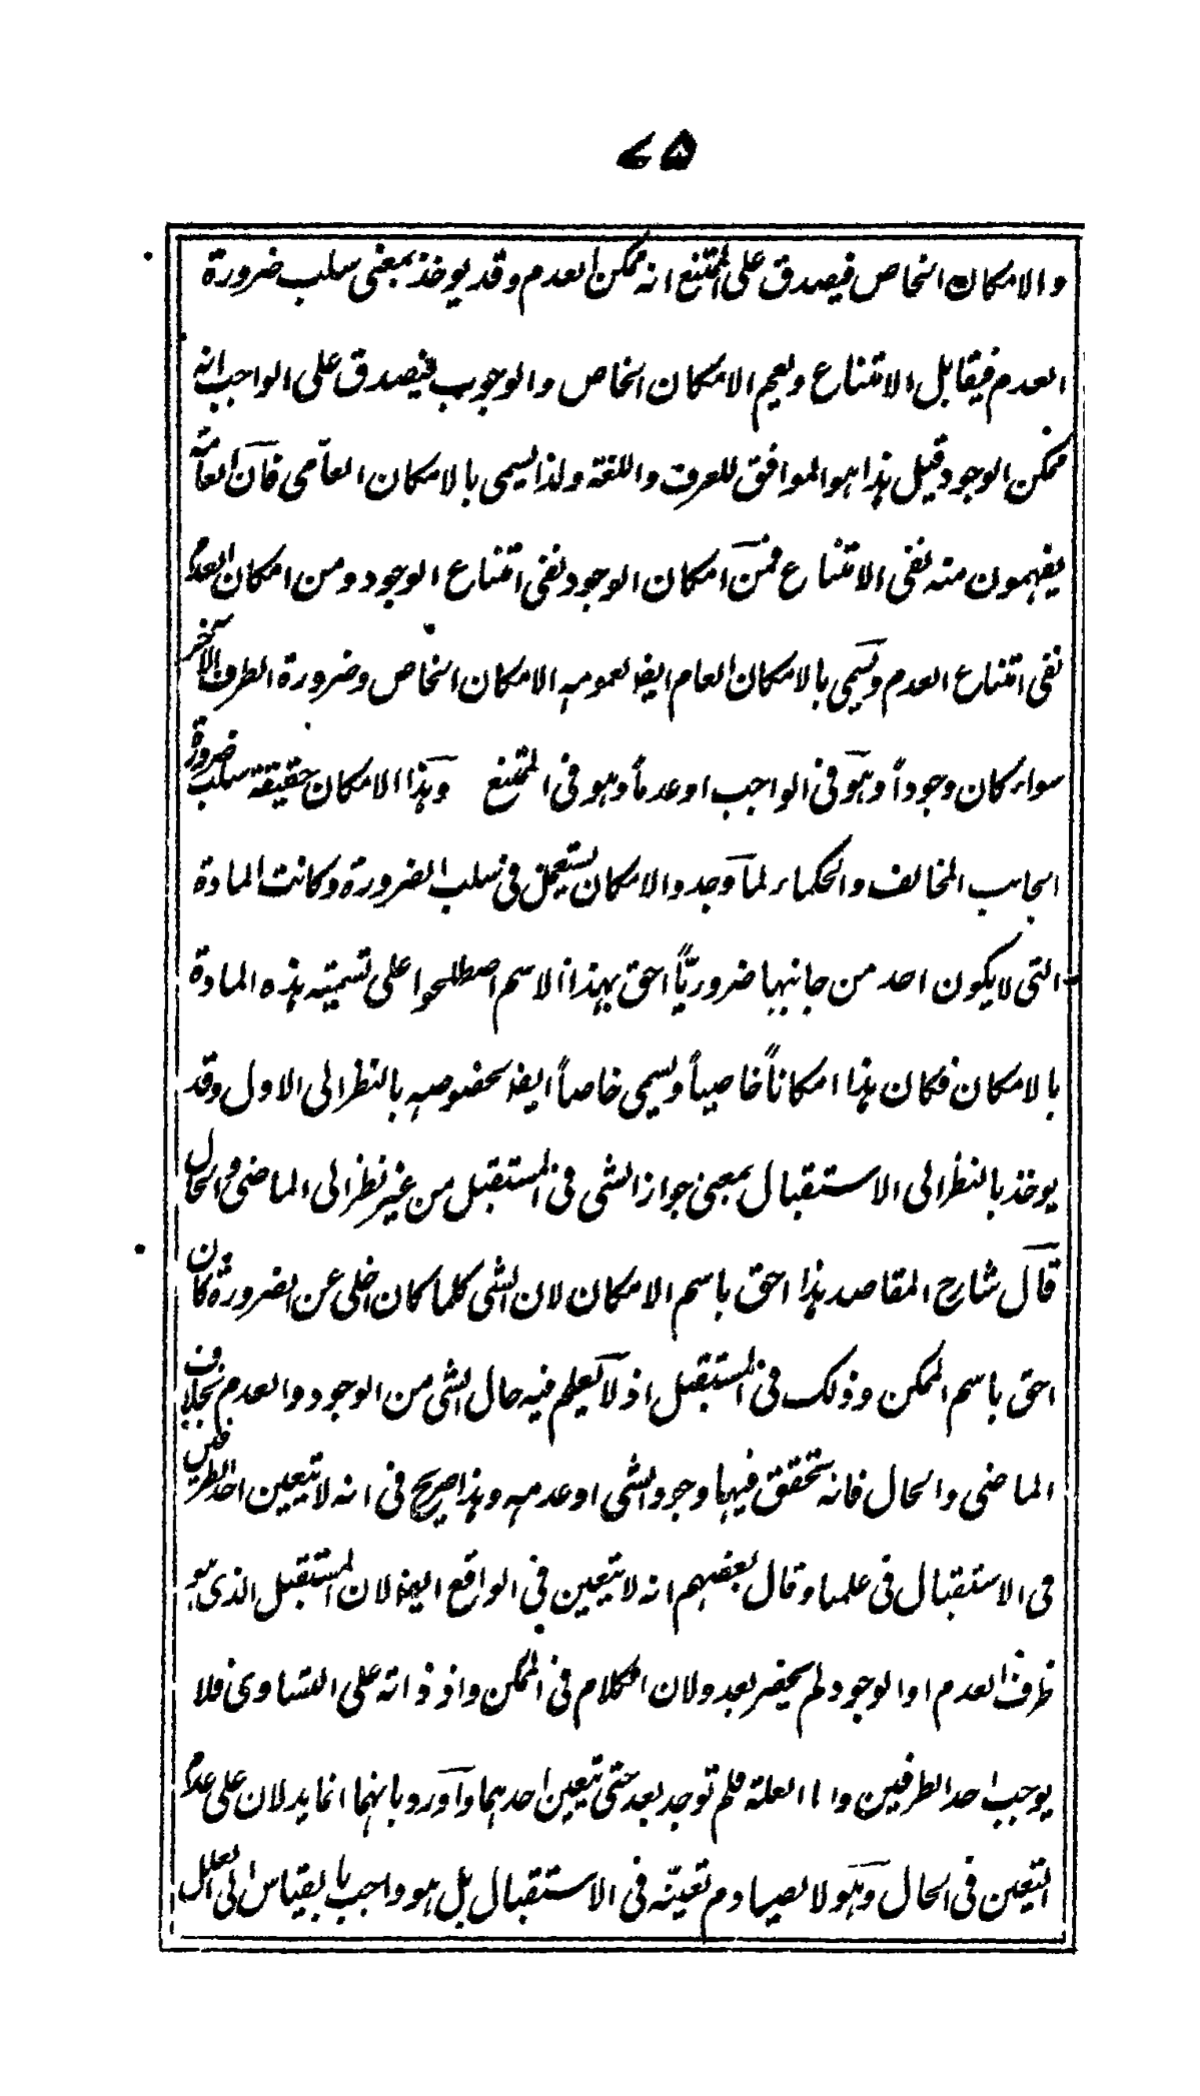 ٧٥
والامكان الخاص فيصدق على الممتنع انه ممكن العدم وقد يوخذ بمعنى سلب ضرورة
العدم فيقابل الامتناع ويعم الامكان الخاص والوجوب فيصدق على الواجب انه
ممكن الوجود قيل هذا هو الموافق للعرف واللغة ولذا يسمى بالامكان العامى فان العامة
يفهمون منه نفى الامتناع فمن امكان الوجود نفى امتناع الوجود ومن امكان العدم
نفى امتناع العدم ويسمى بالامكان العام ايضا لعمومه الامكان الخاص وضرورة الطرف الآخر
سواء كان وجوداً وهو فى الواجب او عدماً وهو فى الممتنع وهذا الامكان حقيقة سلب ضرورة
الجانب المخالف والحكماء لما وجدوا الامكان يستعمل فى سلب الضرورة وكانت المادة
التى لا يكون احد من جانبيها ضروريّاً احق بهذا الاسم اصطلحوا على تسمية هذه المادة
بالامكان فكان هذا امكاناً خاصياً ويسمى خاصاً ايضا لخصوصه بالنظر الى الاول وقد
يوخذ بالنظر الى الاستقبال بمعنى جواز الشى فى المستقبل من غير نظر الى الماضى والحال
قال شارح المقاصد هذا احق باسم الامكان لان الشى كلما كان اخلى عن الضرورة كان
احق باسم الممكن وذلك فى المستقبل اذ لا يعلم فيه حال الشى من الوجود والعدم بخلاف
الماضى والحال فانه تحقق فيهما وجود الشى او عدمه وهذا صريح فى انه لا يتعين احد الطرفين
فى الاستقبال فى علمنا وقال بعضهم انه لا يتعين فى الواقع ايضا لان المستقبل الذى هو
ظرف العدم او الوجود لم يحضر بعد ولان الكلام فى الممكن واذ ذاته على التساوى فلا
يوجب احد الطرفين واما العلة فلم توجد بعد حتى يتعين احدهما واورد بانهما انما يدلان على عدم
التعين فى الحال وهو لا يصادم تعينه فى الاستقبال بل هو واجب بالقياس الى العلل